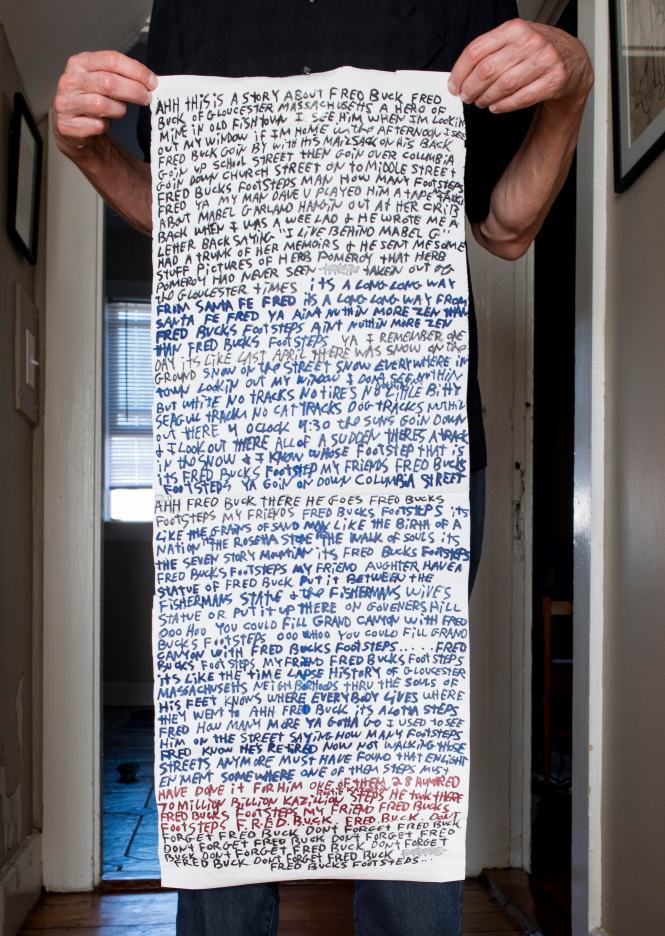 AHH THIS IS A STORY ABOUT FRED BUCK FRED
BUCK OF GLOUCESTER MASSACHUSETTS A HERO OF
MINE IN OLD FISHTOWN I SEE HIM WHEN IM LOOKIN
OUT MY WINDOW IF IM HOME in the AFTERNOON I SEE
FRED BUCK GOIN BY WITH HIS MAILSACK ON HIS BACK
GOIN UP SCHOOL STREET THEN GOIN OVER COLUMBIA
GOIN DOWN CHURCH STREET ON TO MIDDLE STREET
FRED BUCKS FOOTSTEPS MAN HOW MANY FOOTSTEPS
FRED YA MY MAN DAVE U PLAYED HIM A TAPE TALKIN
ABOUT MABEL GARLAND HANGIN OUT AT HER CRIB
BACK WHEN I WAS A WEE LAD & HE WROTE ME A
LETTER BACK SAYING "I LIVE BEHIND MABEL G"
HAD A TRUNK OF HER MEMOIRS & HE SENT ME SOME
STUFF PICTURES OF HERB POMEROY THAT HERB
POMEROY HAD NEVER SEEN TAKEN OUT OF
the GLOUCESTER TIMES itS A LONG LONG WAY
FROM SANTA FE FRED itS A LONG LONG WAY FROM
SANTA FE FRED YA AINT NUTHIN MORE ZEN THAN
FRED BUCKS FOOTSTEPS AINT NUTHIN MORE ZEN
THAN FRED BUCKS FOOTSTEPS YA I REMEMBER ONE
DAY itS LIKE LAST APRIL THERE WAS SNOW ON the
GROUND SNOW ON the STREET SNOW EVERYWHERE in
town LOOKIN OUT MY WINDOW I DONT SEE NUTHIN
BUT WHITE NO TRACKS NO TIRES NO LITTLE BITTY
SEAGUL TRACKS NO CAT TRACKS DOG TRACKS NUTHIN
OUT THERE 4 OCLOCK 4:30 the SUNS GOIN DOWN
& I LOOK OUT THERE ALL OF A SUDDEN THERES A TRACK
in the SNOW & I KNOW WHOSE FOOTSTEP THAT IS
itS FRED BUCKS FOOTSTEP MY FRIENDS FRED BUCKS
FOOTSTEPS YA GOIN ON DOWN COLUMBIA STREET
AHH FRED BUCK THERE HE GOES FRED BUCKS
FOOTSTEPS MY FRIENDS FRED BUCKS FOOTSTEPS itS
LIKE the GRAINS OF SAND MAN LIKE THE BIRTH OF A
NATION THE ROSETTA STONE THE WALK OF SOULS itS
the SEVEN STORY MOUNTAIN itS FRED BUCKS FOOTSTEPS
FRED BUCKS FOOTSTEPS MY FRIEND AUGHTER HAVE A
STATUE OF FRED BUCK PUT it BETWEEN THE
FISHERMANS STATUE & the FISHERMANS WIVES
STATUE OR PUT it UP THERE ON GOVENERS HILL
OOO HOO YOU COULD FILL GRAND CANYON WITH FRED
BUCKS FOOTSTEPS OOO WHOO YOU COULD FILL GRAND
CANYON WITH FRED BUCKS FOOTSTEPS ...... FRED
BUCKS FOOTSTEPS MY FRIEND FRED BUCKS FOOTSTEPS
itS LIKE the TIME LAPSE HISTORY OF GLOUCESTER
MASSACHUSETTS NEIGHBORHOODS THRU the SOULS OF
HIS FEET KNOWS WHERE EVERYBODY LIVES WHERE
THEY WENT TO AHH FRED BUCK itS ALOTTA STEPS
FRED HOW MANY MORE YA GOTTA GO I USED TO SEE
HIM ON THE STREET SAYING HOW MANY FOOTSTEPS
FRED KNOW HE'S RETIRED NOW NOT WALKING THOSE
STREETS ANYMORE MUST HAVE FOUND THAT ENLIGHT
ENMENT SOMEWHERE ONE OF THEM STEPS MUST
HAVE DONE it FOR HIM ONE OF THEM 28 HUNDRED
70 MILLION BILLION KAZILLION STEPS HE took THERE
FRED BUCKS FOOTSTEPS MY FRIEND FRED BUCKS
FOOTSTEPS F.R.E.D. BUCK. FRED. BUCK. DONT
FORGET FRED BUCK DONT FORGET FRED BUCK
DONT FORGET FRED BUCK DONT FORGET FRED
BUCK DONT FORGET FRED BUCK DONT FORGET
FRED BUCK DONT FORGET FRED BUCK
FRED BUCKS FOOTSTEPS...